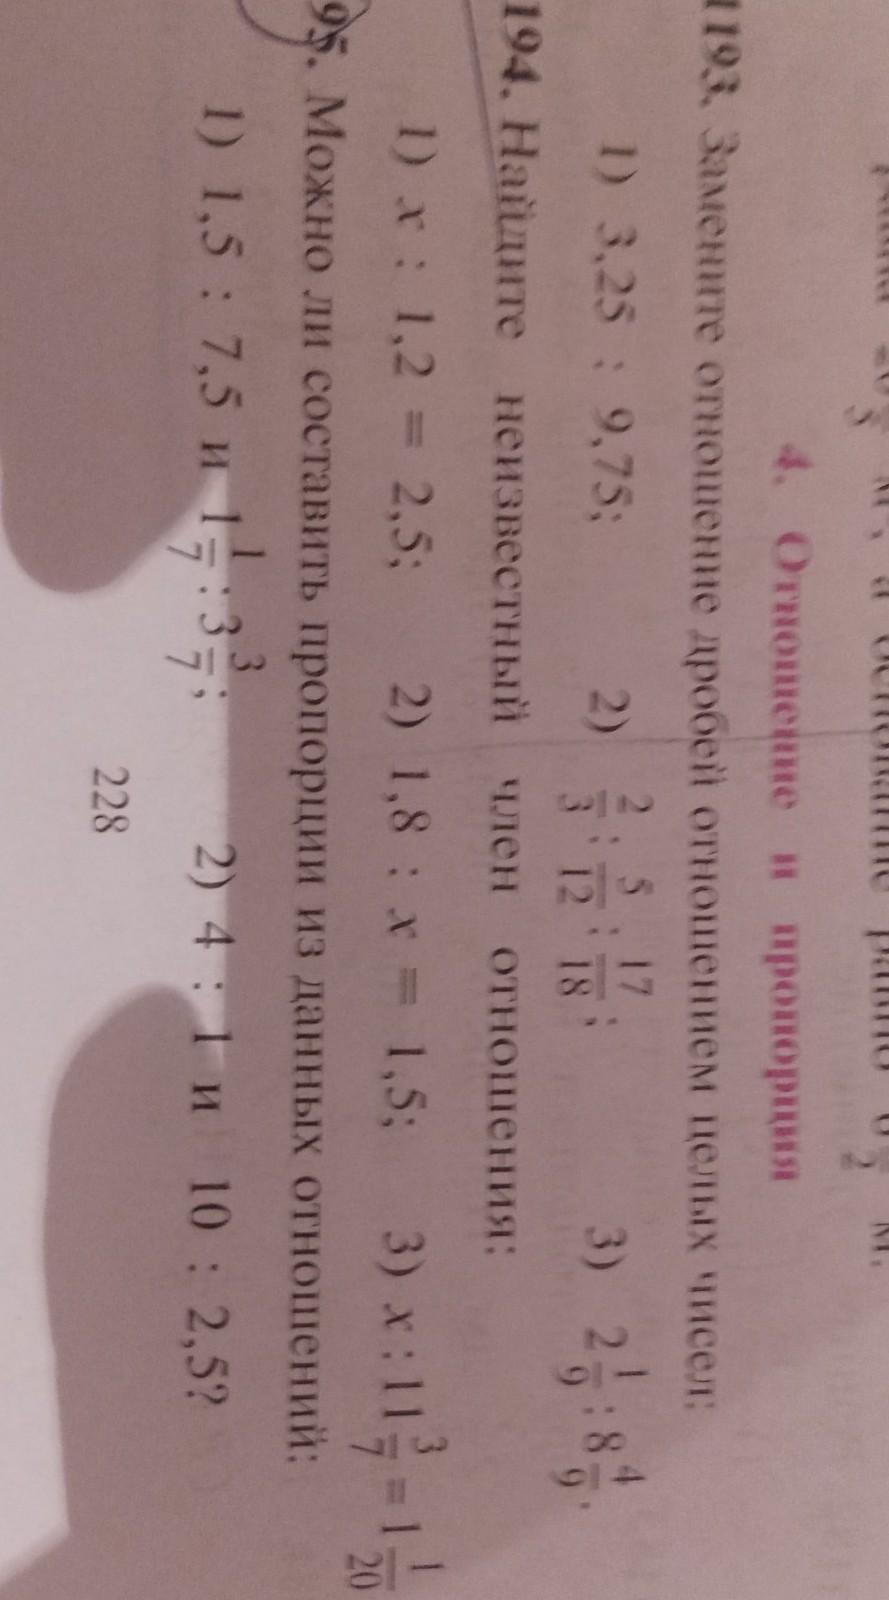 м, а основание равно м.
4. Отношение и пропорция
1193. Замените отношение дробей отношением целых чисел:
1) 3,25 : 9,75; 2) 2/3 : 5/12 : 17/18; 3) 2 1/9 : 8 4/9.
194. Найдите неизвестный член отношения:
1) x : 1,2 = 2,5; 2) 1,8 : x = 1,5; 3) x : 11 3/7 = 1 1/20
95. Можно ли составить пропорции из данных отношений:
1) 1,5 : 7,5 и 1 1/7 : 3 3/7; 2) 4 : 1 и 10 : 2,5?
228